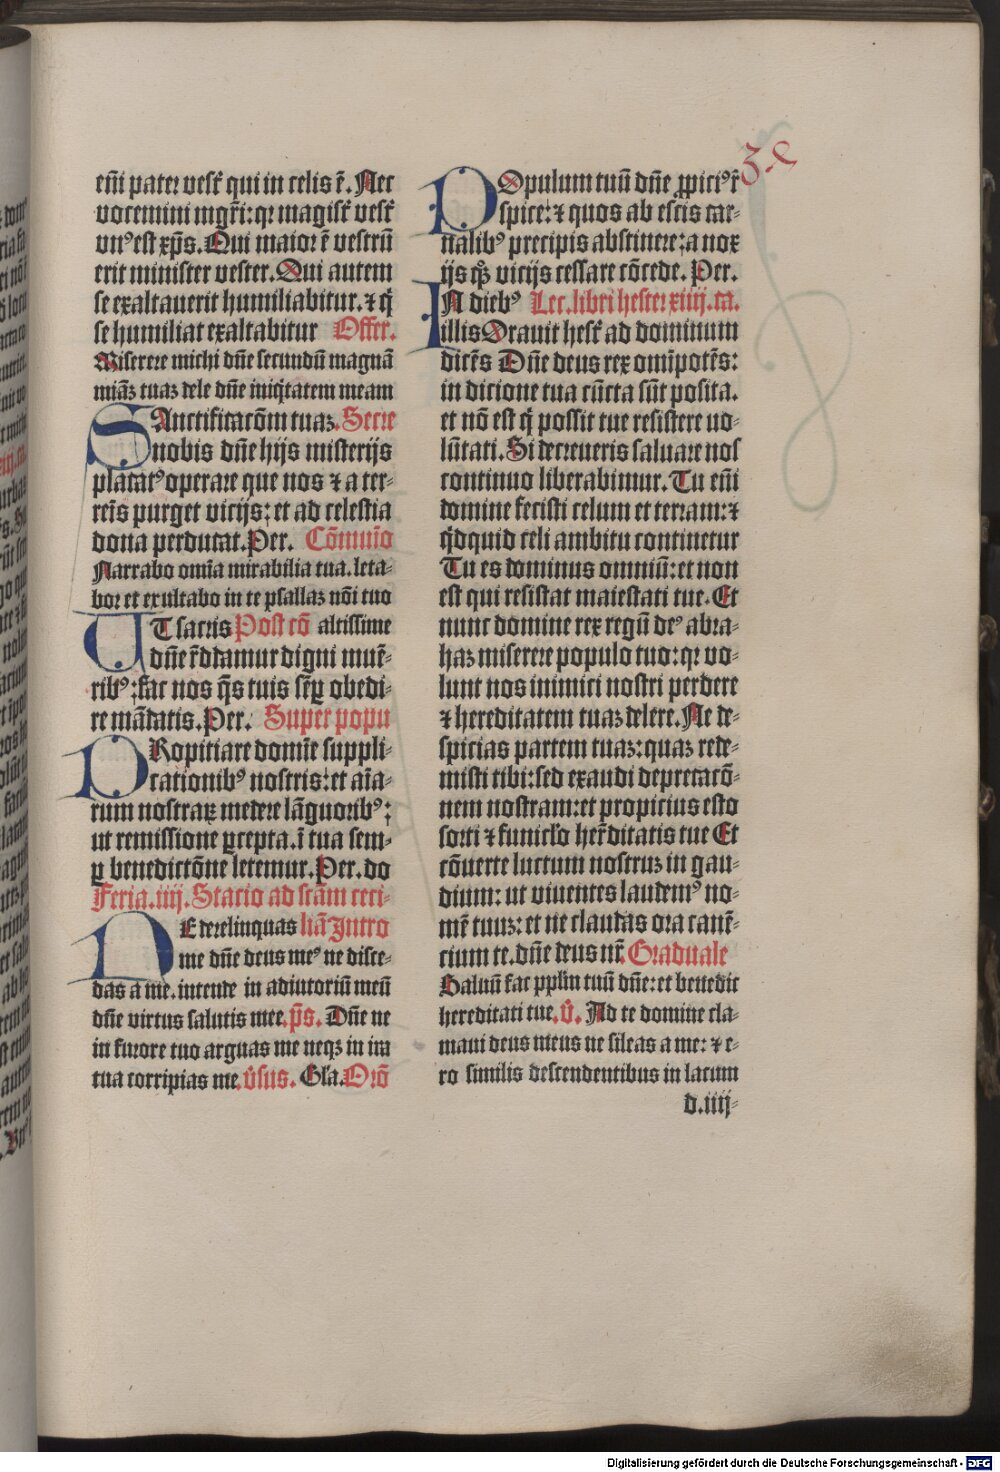 em̄ pater vestˀ qui in celis ē. Nec
vocemini mgr̄i: qꝛ magistˀ vestˀ
vnꝰ est xp̄s. Qui maior ē vestrū
erit minister vester. Qui autem
se exaltauerit humiliabitur. ⁊ q̄
se humiliat exaltabitur Offer.
Miserere michi dn̄e secundū magnā
miāꝫ tuaꝫ dele dn̄e iniq̄tatem meam
SAnctificacōm tuaꝫ. Secre
nobis dn̄e hijs misterijs
placatꝰ operare que nos ⁊ a ter-
reīs purget vicijs: et ad celestia
dona perducat. Per. Cōmuīo
Narrabo omīa mirabilia tua. leta-
bor et exultabo in te psallaꝫ nōi tuo
UT sacris Post cō altissime
dn̄e r̄ddamur digni mūe-
ribꝰ: fac nos q̄s tuis semꝑ obedi-
re mādatis. Per. Super popu
PRopitiare domīe suppli-
cationibꝰ nostris: et aīa-
rum nostraꝝ medere lāguoribꝰ:
ut remissione ꝑcepta. ī tua sem-
ꝑ benedictōne letemur. Per. do
Feria. iiij. Stacio ad scām ceci-
NE derelinquas liā Intro
me dn̄e deus meꝰ ne disce-
das a me. intende in adiutoriū meū
dn̄e virtus salutis mee. p̄s. Dn̄e ne
in furore tuo arguas me neqꝫ in ira
tua corripias me. v̄sus. Gl'a. Orō
POpulum tuū dn̄e ꝓpiciꝰ r̄
spice: ⁊ quos ab escis car-
nalibꝰ precipis abstinere: a nox
ijs qꝫ vicijs cessare cōcede. Per.
IN diebꝰ Lec. libri hester xiiij. ca.
illis Orauit hestˀ ad dominum
dicēs Dn̄e deus rex omīpotēs:
in dicione tua cūcta sūt posita.
et nō est q̄ possit tue resistere uo-
lūtati. Si decreueris saluare nos
continuo liberabimur. Tu em̄
domine fecisti celum et terram: ⁊
q̄dquid celi ambitu continetur
Tu es dominus omniū: et non
est qui resistat maiestati tue. Et
nunc domine rex regū deꝰ abra-
haꝫ miserere populo tuo: qꝛ vo-
lunt nos inimici nostri perdere
⁊ hereditatem tuaꝫ delere. Ne de-
spicias partem tuaꝫ: quaꝫ rede-
misti tibi: sed exaudi deprecacō-
nem nostram: et propicius esto
sorti ⁊ funicl'o her̄ditatis tue Et
cōuerte luctum nostruꝫ in gau-
dium: ut viuentes laudemꝰ no-
mē tuuꝫ: et ne claudas ora canē-
cium te. dn̄e deus nr̄. Graduale
Saluū fac pplm̄ tuū dn̄e: et benedic
hereditati tue. v̄. Ad te domine cla-
maui deus meus ne sileas a me: ⁊ e-
ro similis descendentibus in lacum
d. iiij-
Digitalisierung gefördert durch die Deutsche Forschungsgemeinschaft - DFG